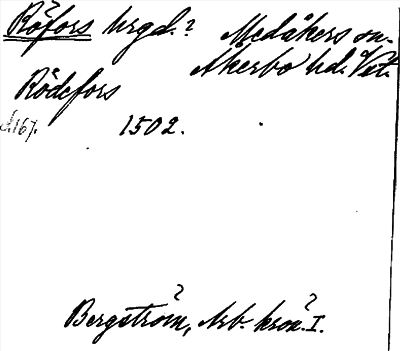 Röfors hrgd.? Medåkers sn.
Åkerbo hd. Vstm.
Rödefors
d. 167.
1502.
Bergström, Arb. krön. I.